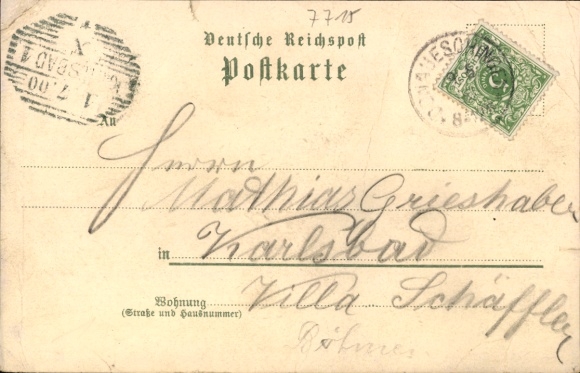 7718
Deutsche Reichspost
Postkarte
KARLSBAD 1
1. 7. 00
X
DONAUESCHINGEN
An
Herrn
Mathias Grieshaber
in Karlsbad
Wohnung Villa Schäffler
(Straße und Hausnummer)
Böhmen